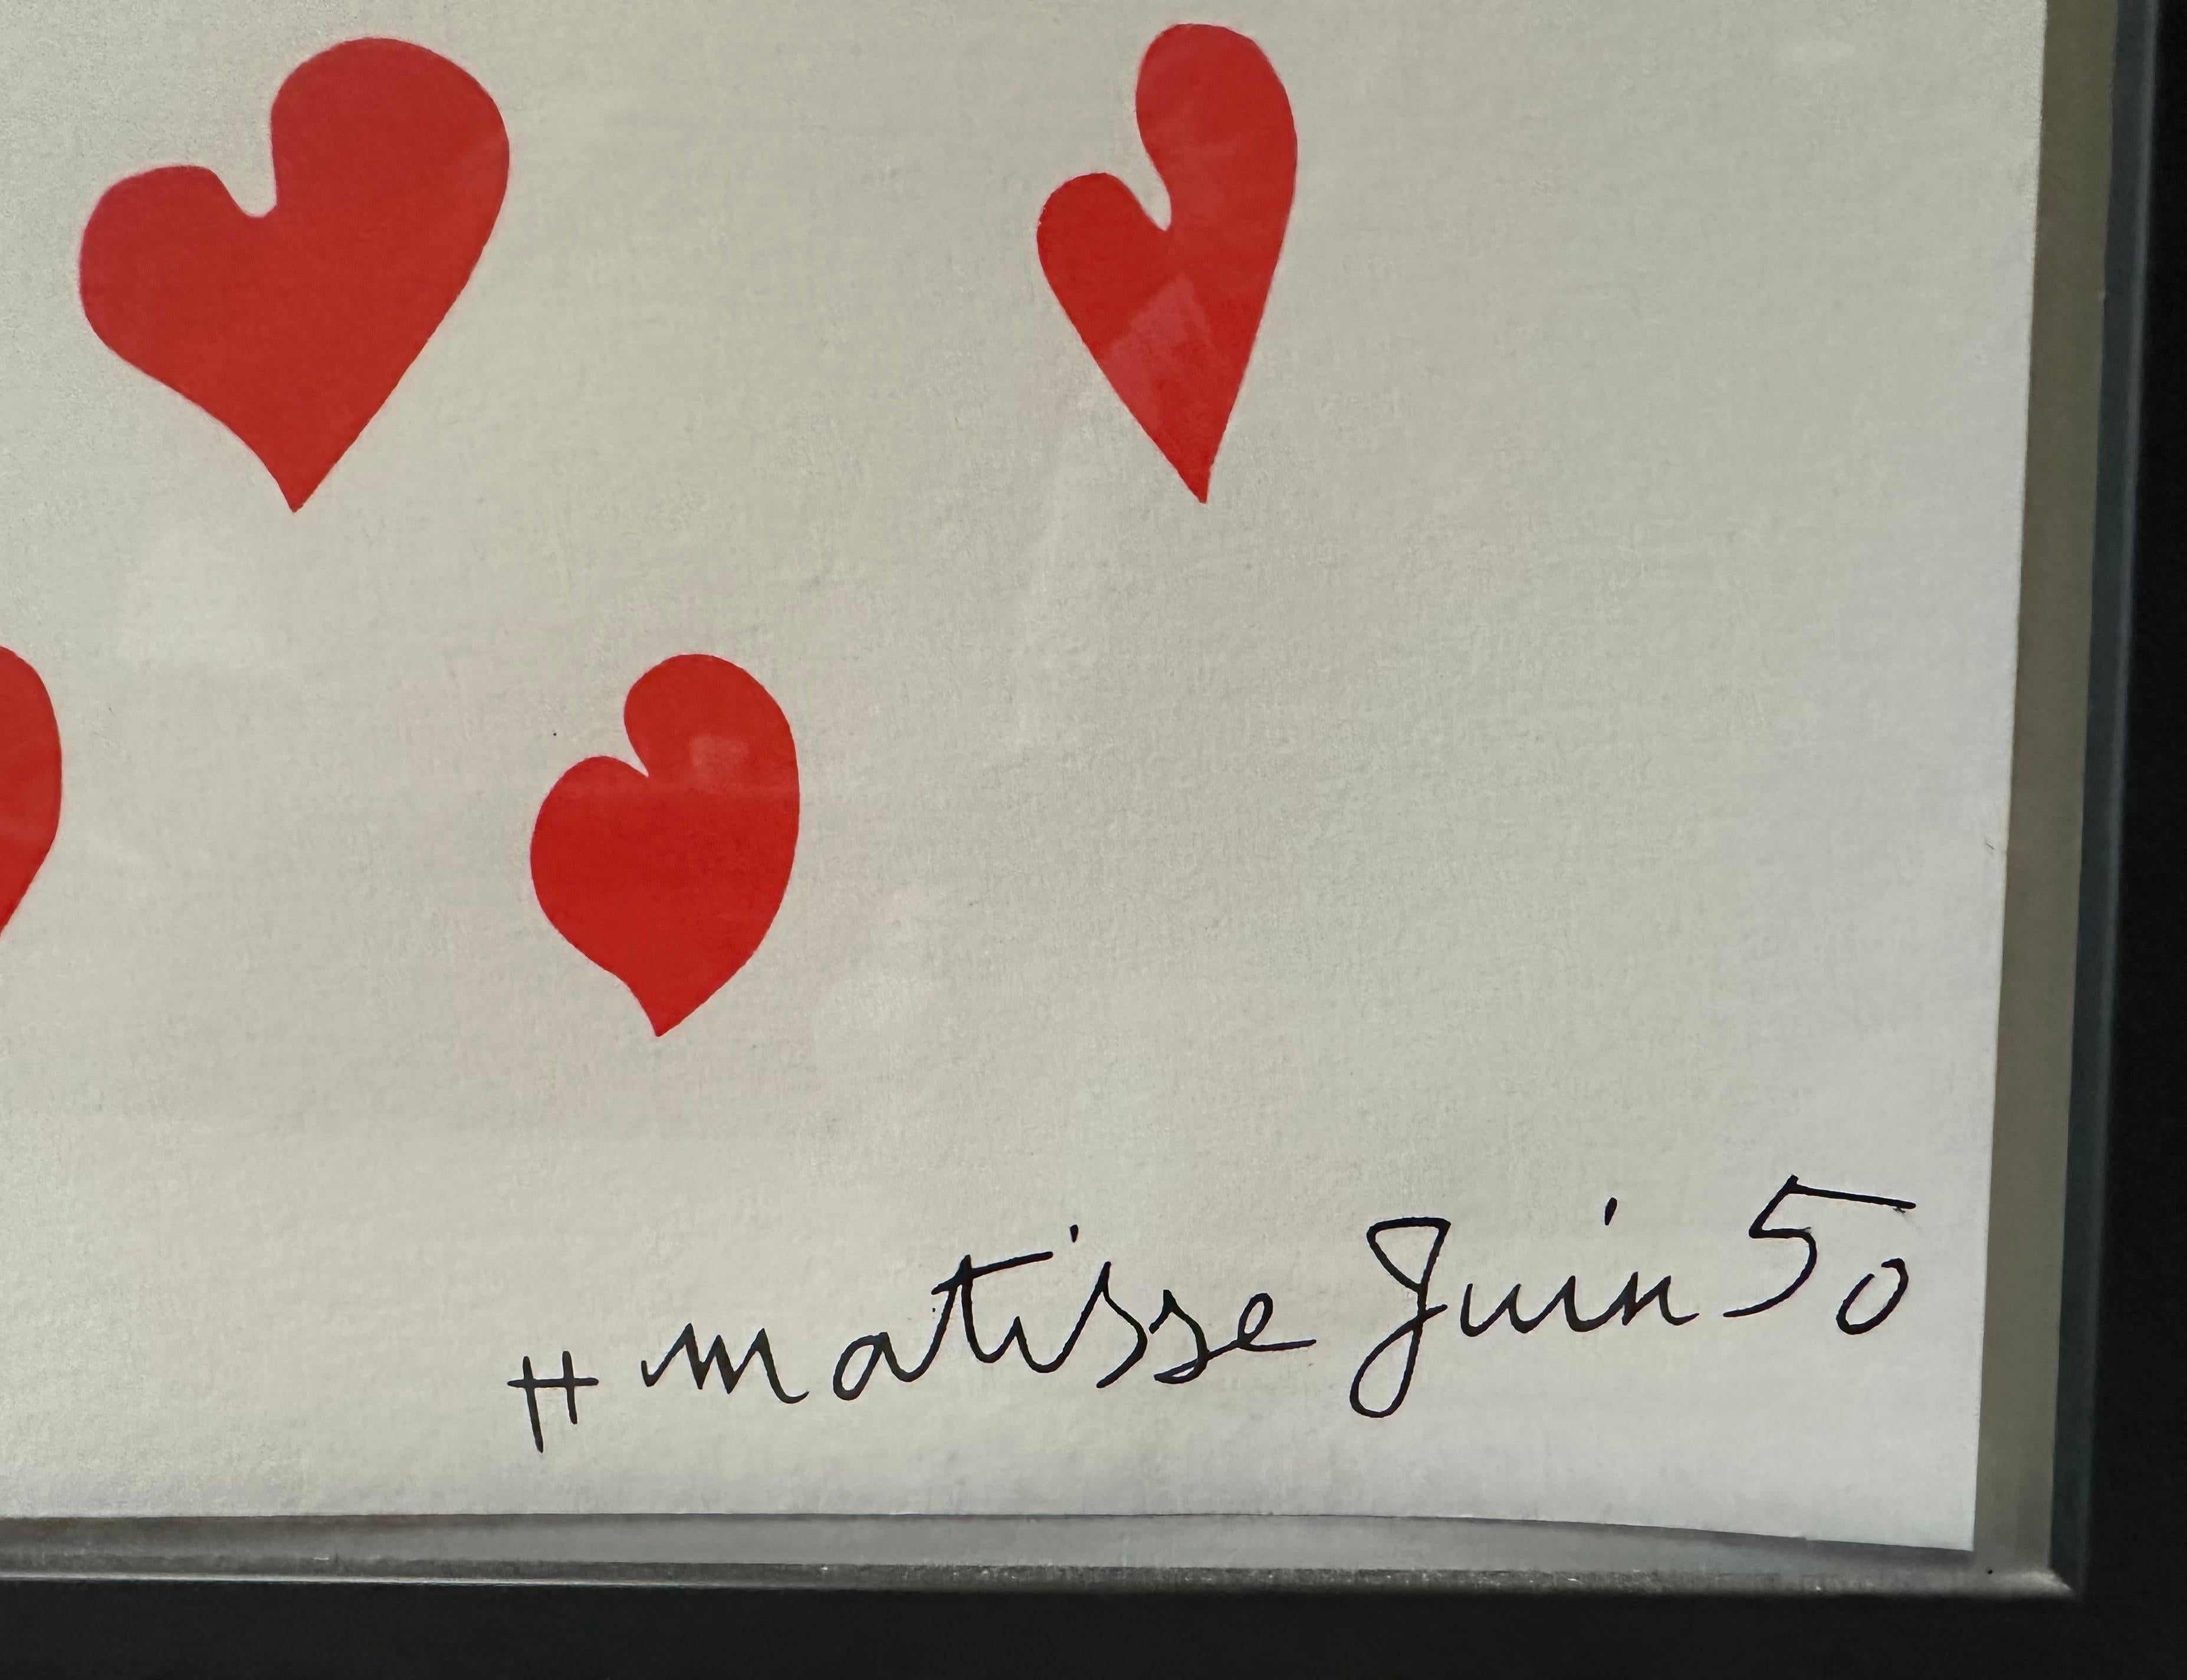 H matisse Juin 50